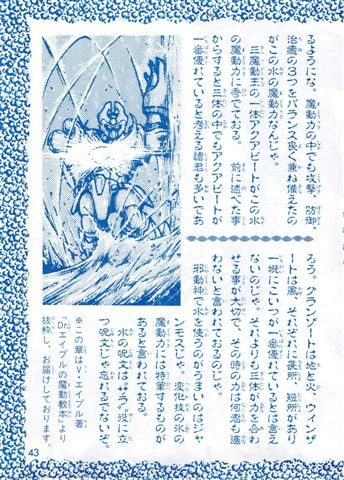 るような。魔動力の中でも攻撃中、防御
治癒の3つをバランス良く兼ね備えたの
がこの水の魔動力なんじゃ。
三魔動王の一体アクアビートがこの水
の魔動力に長でておる。前に述べた事
からすると三体の中でもアクアビートが
一番優れていると考える諸君も多いであ
ろう。グランゾートは地と火、ウインザ
ートは風、それぞれに長所、短所があり
一概にこいつが一番優れているとは言え
ないのじゃ。それよりも三体が力を合わ
せる事が大切で、その時の力は何者も適
わないと言われておるのじゃ。
邪動神で水を使うのがうまいのはジャ
ンモスじゃ。変化技の氷の
魔動力には特筆するものが
あると言われておる。
水の呪文は
つ呪文じゃ忘れるでないぞ。
※この章はV・エイブル著
『Dr.エイブルの魔動教本』より
抜粋し、お届けしております。
43